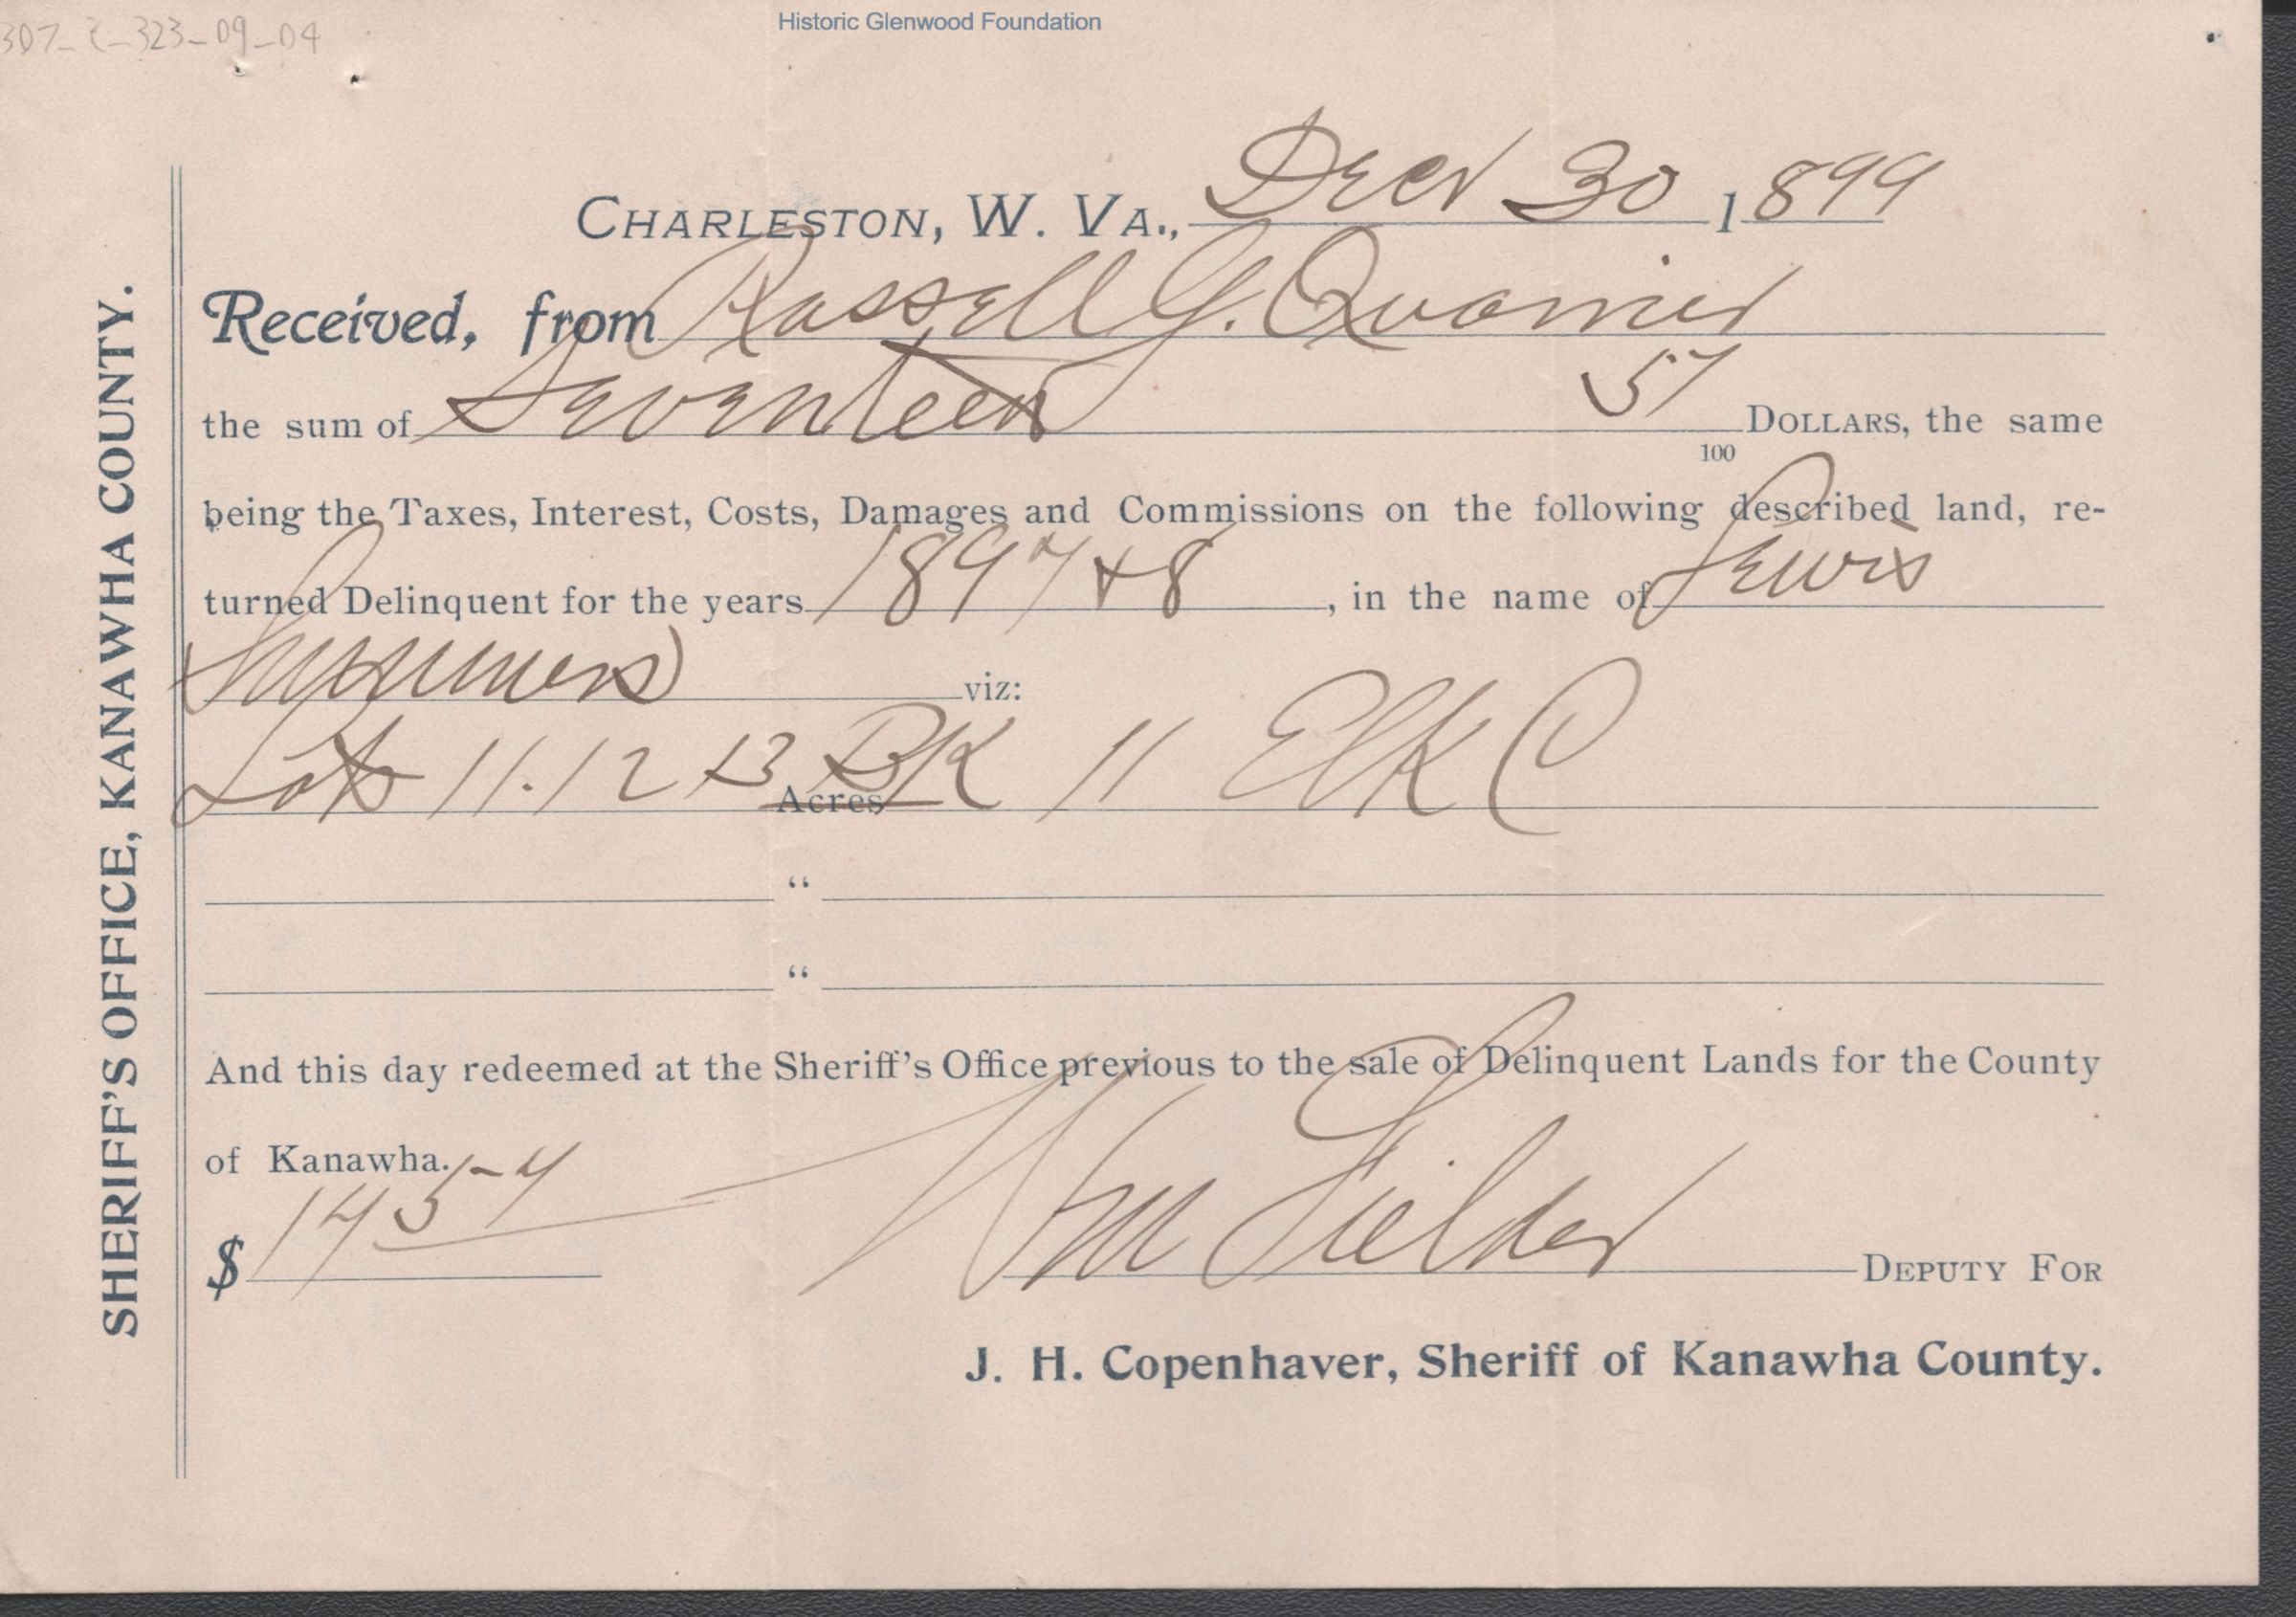 307_2_323_09_04
Historic Glenwood Foundation
SHERIFF'S OFFICE, KANAWHA COUNTY.
CHARLESTON, W. VA., Decr 30 1899
Received, from Russell G. Quarrier
the sum of Seventeen 57/100 DOLLARS, the same
being the Taxes, Interest, Costs, Damages and Commissions on the following described land, re-
turned Delinquent for the years 1897 & 8, in the name of Lewis
Summers viz:
Lots 11. 12 13 BK Acres 11 Elk C
“
“
And this day redeemed at the Sheriff's Office previous to the sale of Delinquent Lands for the County
of Kanawha.
$ Wm Fielder DEPUTY FOR
J. H. Copenhaver, Sheriff of Kanawha County.